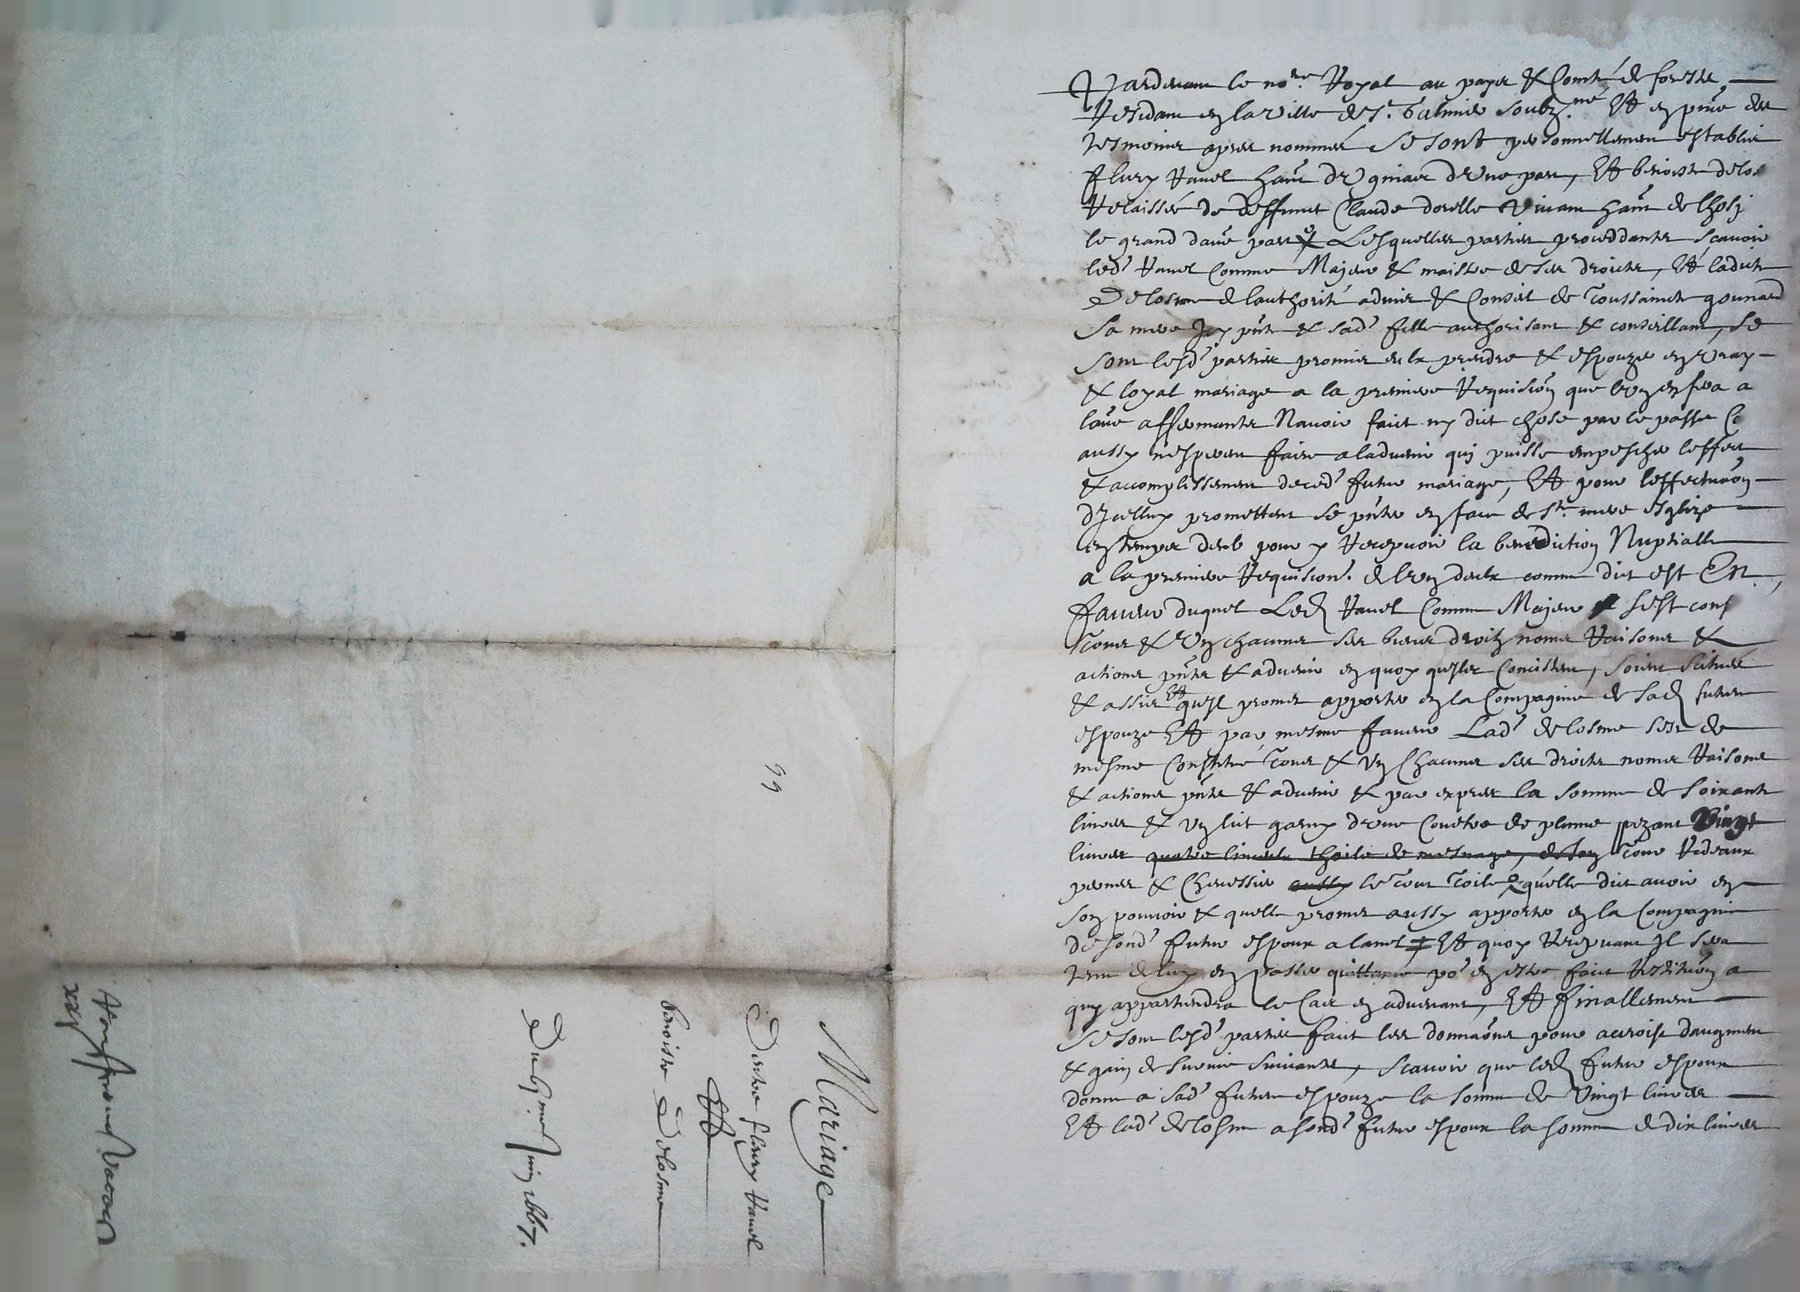 Mariage
D'entre fleury Ravel
Et
benoiste Delosme
Du 9me juin 1667.
99
Pardevant le nore Royal au pays & Comté de forestz
Residant en la ville de St. Galmier soubzné Et en pnce des
tesmoins apres nommés Se sont personnellement establis
fleury Ravel hant d'une part, Et benoiste delos
Relaissée de deffunct Claude vivant hant de
le grand d'aue part Lesquelles parties proceddantes scavoir
led Ravel Comme Majeur & maistre de ses droicts, Et ladicte
Delosme de lauthorité advis & Conseil de Toussaincte gounard
sa mere Icy pnte & sad fille authorisant & conseillant, se
sont lesd parties promis eulx prendre & espouzer en vray
& loyal mariage a la premiere Requision que lun en fera a
laue affermantz Navoir faict ny dict chose par le passé
aussy n'esperent faire a ladvenir qui puisse empescher leffect
& accomplissement de ced futur mariage, Et pour leffectuaon
d'Icelluy promettent se pnter en face de Ste mere esglize
en temps deub pour y Recepvoir la benediction Nuptialle
a la premiere Requision. de lun deulx comme dict est En
faveur duquel Led Ravel Comme Majeur s'est cons
tous & Un chacuns ses biens droitz noms Raisons &
actions pntz & advenir en quoy quilz Concistent, soient scitués
& assis Et quil promet apporter en la Compagnie de sad future
espouze Et par mesme faveur Lad delosme sest de
mesme Constitué tous & Un Chacuns ses droictz noms Raisons
& actions pntz & advenir & par exprès la somme de soixante
livres & Un lict garny d'une Couetre de plume pezant Vingt
livres quatre linceulx thoile de mesnage, tour Rideaux
& le tout toile quelle dict avoir en
son pouvoir & quelle promet aussy apporter en la Compagnie
de sond futur espoux Et quoy Recepvant Il sera
tenu de luy en passer quittance po en estre faict Restituon a
quy appartiendra le Cas en advenant, Et finallement
Se sont lesd parties faict les donnaons pour accroist daugment
& gain de survie suivantes, scavoir que led futur espoux
donne a sad future espouze la somme de Vingt livres
Et lad delosme a sond futur espoux la somme de dix livres